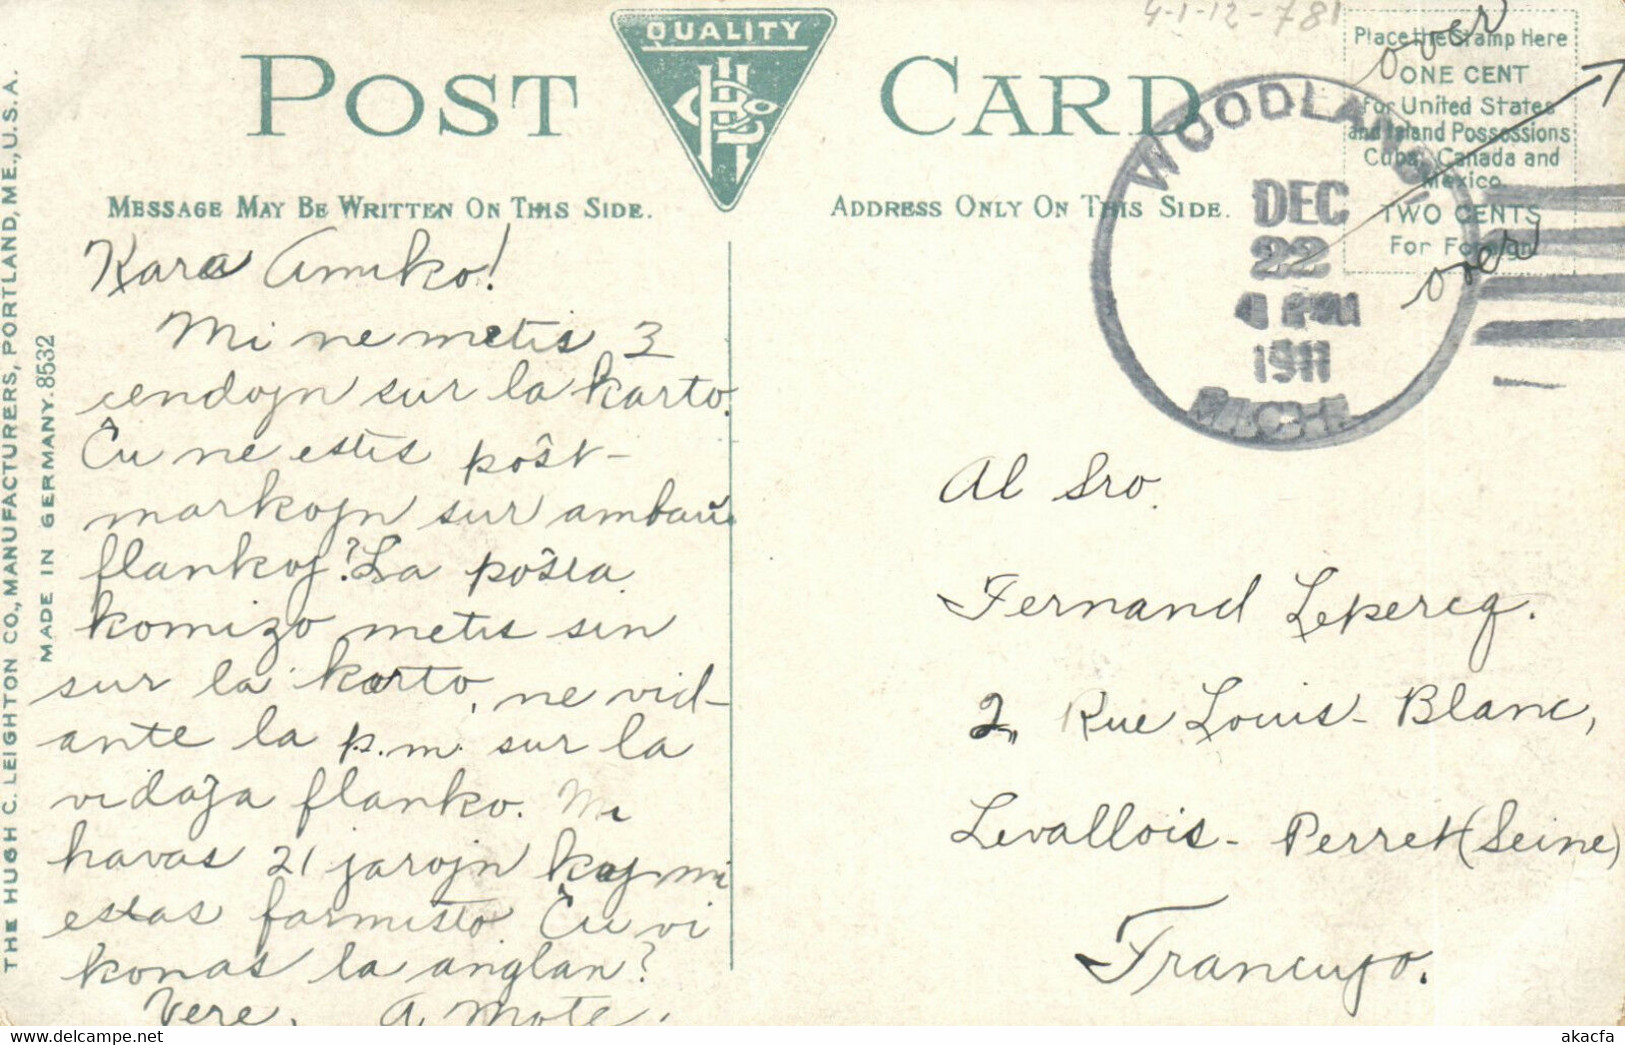 4-1-12-781
QUALITY
POST CARD
MESSAGE MAY BE WRITTEN ON THIS SIDE.
ADDRESS ONLY ON THIS SIDE.
Place the Stamp Here
ONE CENT
for United States
and Island Possessions
Cuba, Canada and
Mexico.
TWO CENTS
For Foreign
over
over
WOODLAND
DEC
22
1911
MICH.
THE HUGH C. LEIGHTON CO., MANUFACTURERS, PORTLAND, ME., U.S.A.
MADE IN GERMANY. 8532
Kara Amiko!
Mi ne metis 3
cendojn sur la karto.
Ĉu ne estis pôst-
markojn sur ambaŭ
flankoj? La pôsta
komizo metis sin
sur la karto, ne vid-
ante la p.m. sur la
vidaĵa flanko. Mi
havas 21 jarojn kaj mi
estas farmisto Ĉu vi
konas la anglan?
Vere, A Mote.
Al Sro.
Fernand Lepercq.
2, Rue Louis-Blanc,
Levallois-Perret (Seine)
Francujo.
akacfa